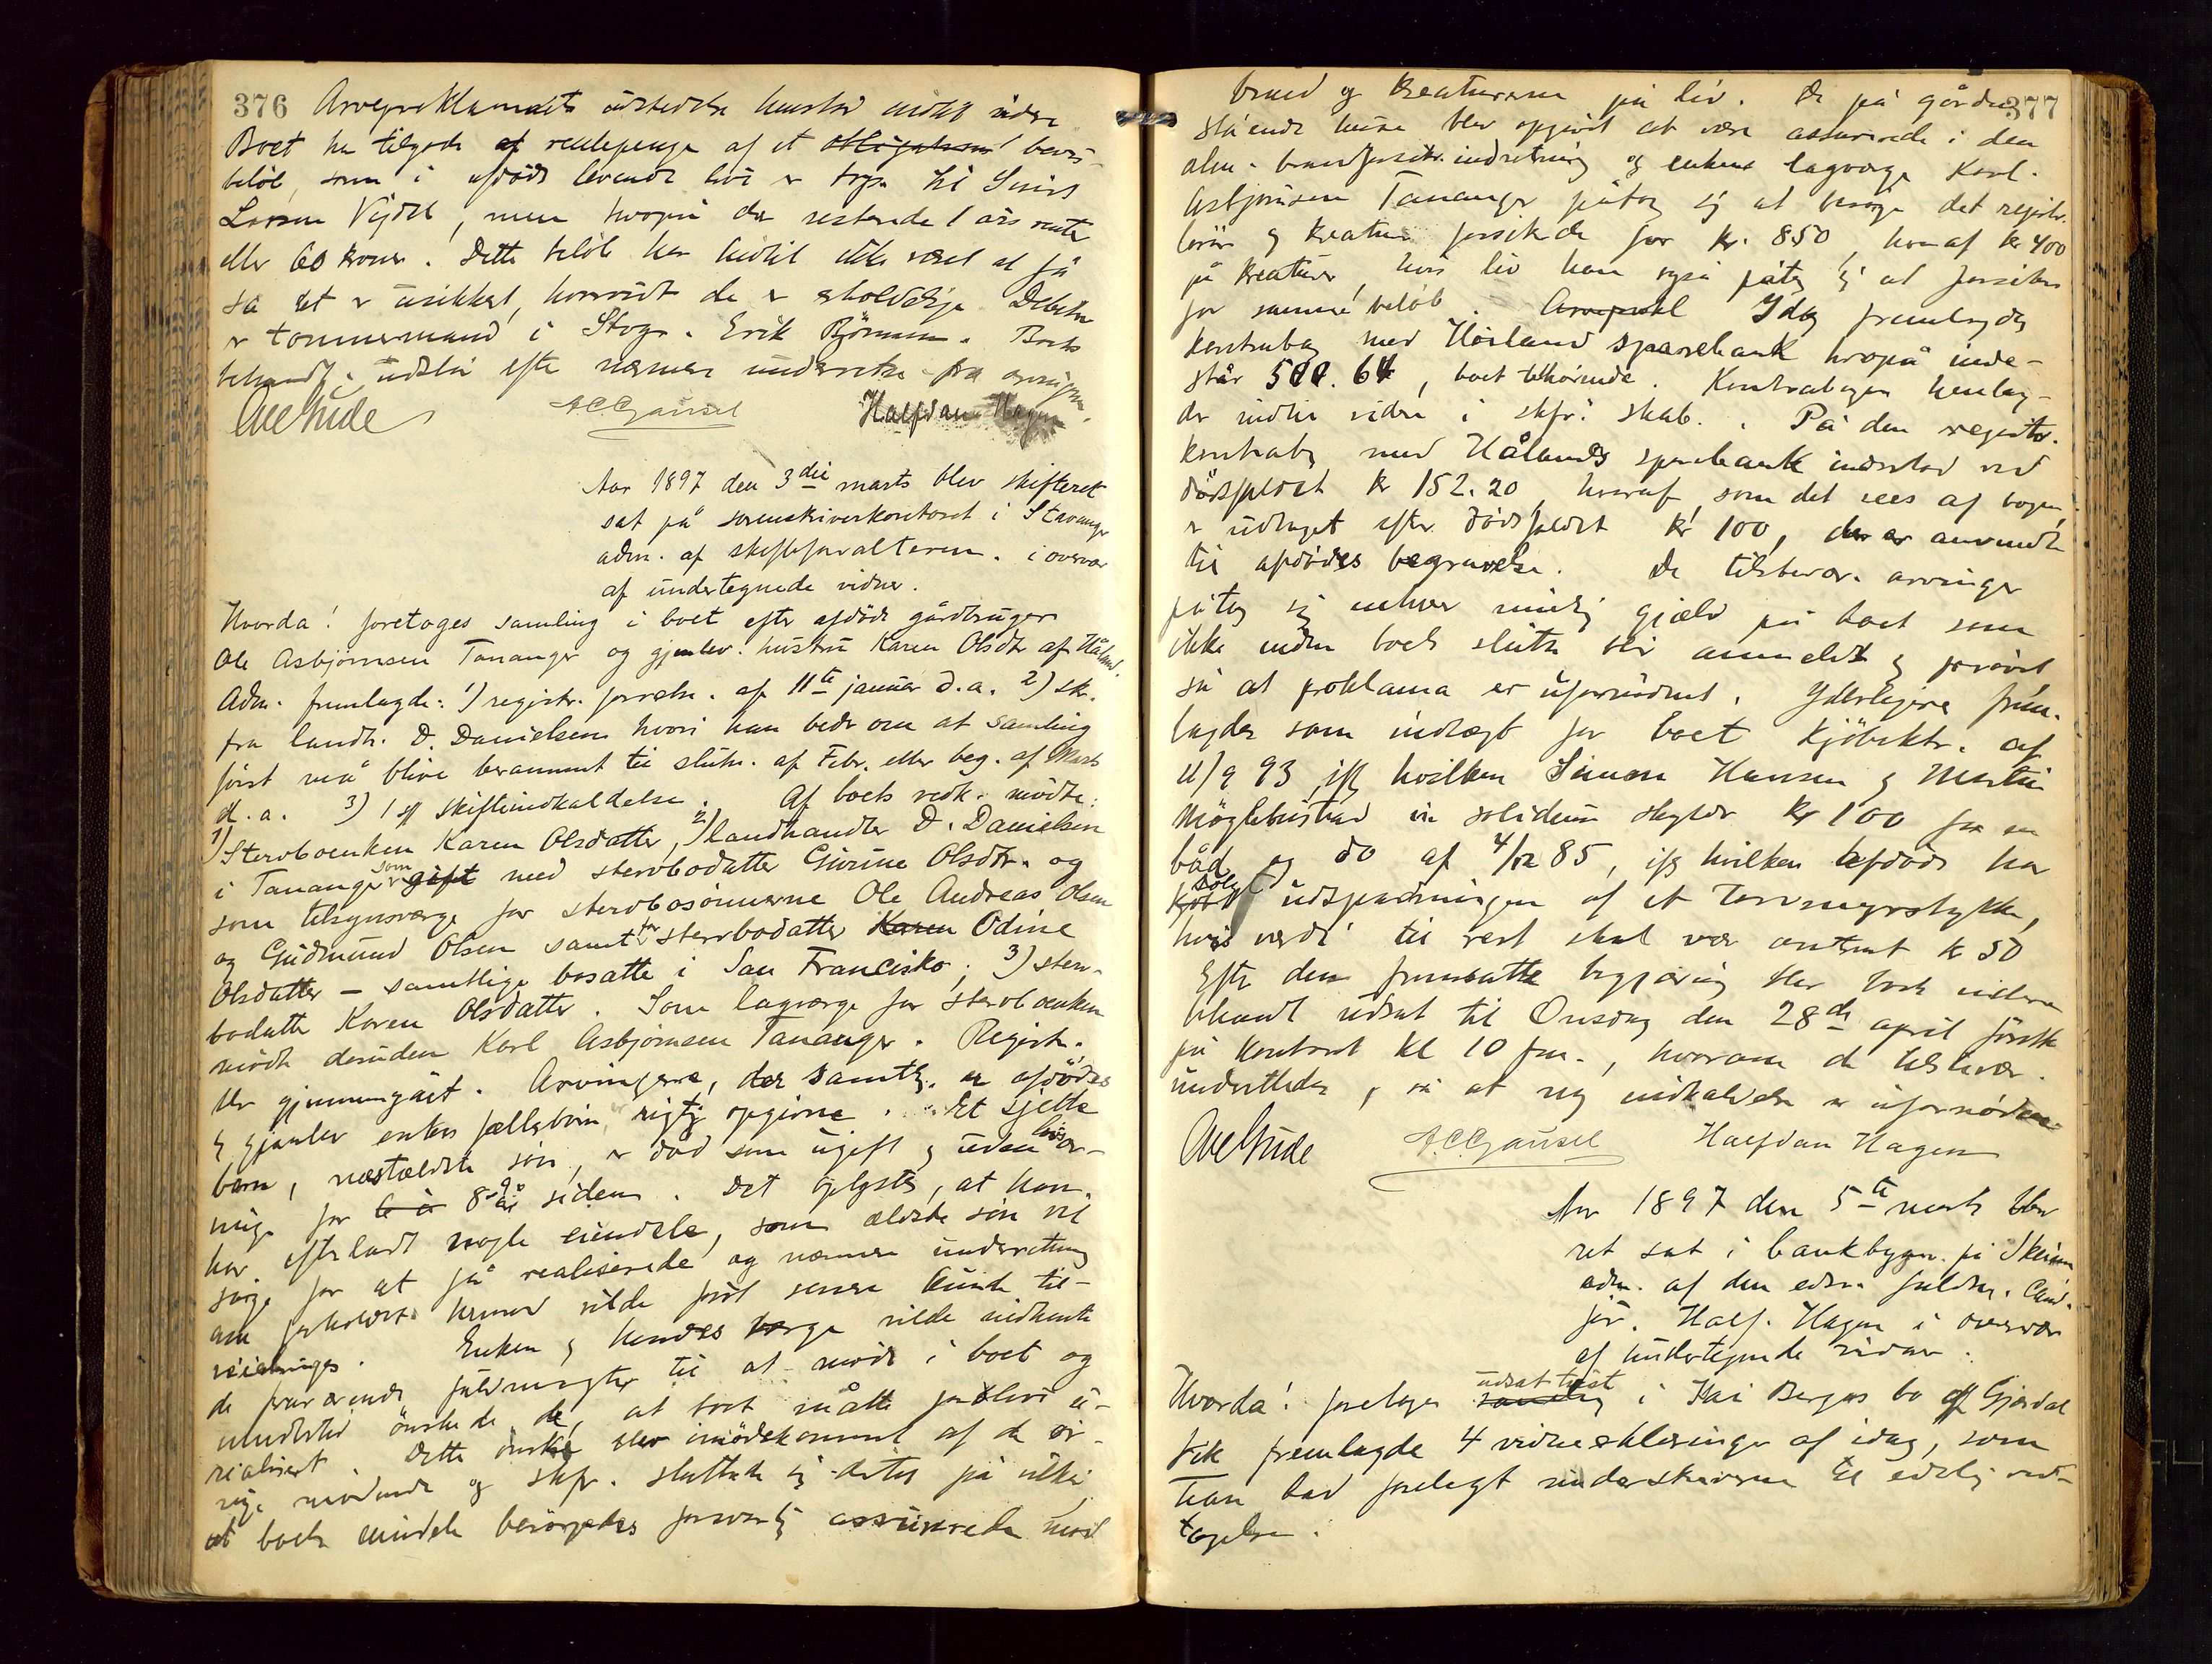 376 Arveproklamats udstedelse henstod indtil videre
Boet har tilgode af rentepenge af et obligations bevis-
beløb, som i afdødes levende live er transp. til
Larsen Vejdel, men hvorpå der resterede 1 års rente
eller 60 kroner. Dette beløb har hidtil ikke været at få
så det er usikkert, hvorvidt de er erholdelige. Debitor
er tømmermand i Stvgr. Erik Bjørnsen. Boets
behandl. udstår efter nærmere underretn. fra arvingerne.
Ove Gude A C Gausel Halfdan Hagen
Aar 1897 den 3die marts blev skifteret
sat på sorenskriverkontoret i Stavanger
adm. af skifteforvalteren i overvær
af undertegnede vidner.
Hvorda! foretoges samling i boet efter afdøde gårdbruger
Ole Asbjørnsen Tananger og gjenlev. hustru Karen Olsdtr af Håland.
Adm. fremlagde: 1) registr. forretn. af 11te januar d.a. 2) skr.
fra landh. D. Danielsen hvori han beder om at samling
først må blive berammet til slutn. af Febr. eller beg. af Marts
d.a. 3) 1 st skifteindkaldelse. Af boets vedk. mødte:
1) Stervboenken Karen Olsdatter, 2) landhandler D. Danielsen
i Tananger som er gift med stervbodatter Gurine Olsdtr. og
som tilsynsværge for stervbosønnerne Ole Andreas Olsen
og Gudmund Olsen samt for stervbodatter Karen Odine
Olsdatter – samtlige bosatte i San Francisko; 3) sterv-
bodatter Karen Olsdatter. Som lagværge for stervboenken
mødte desuden Karl Asbjørnsen Tananger. Registr.
blev gjennemgået. Arvingerne, der samtl. er afdødes
og gjenlev enkes fællesbørn, er rigtig opgivne. Et sjette
barn, næstældste søn, er død som ugift og uden livsar-
vinge for 8-9 år siden. Det oplystes, at han
har efterladt nogle eiendele, som ældste søn vil
sørge for at få realiserede og nærmere underretning
om forholdet hermed vilde først senere kunde til-
veiebringes. Enken og hendes værge vilde indhente
de fraværende fuldmagter til at møde i boet og
imidlertid ønskede de, at boet måtte forblive u-
realisert. Dette ønske blev imødekommet af de øv-
rige mødende og skfr. sluttede sig dertil på vilkår
at boets eiendele besørgedes forsvarlig assurerede mod
377
brand og kreaturerne på liv. De på gården
stående huse blev opgivet at være assurerede i den
alm. brandforsikr. indretning og enkens lagværge Karl
Asbjørnsen Tananger påtog sig at besørge det registr.
løsøre og kreaturer forsikrede for kr. 850, hvoraf kr 400
på kreaturer, hvis liv han også påtog sig at forsikre
for samme beløb. Arveprokl Idag fremlagdes
kontrabog med Høiland sparebank hvorpå inde-
står 500.64, boet tilhørende. Kontrabogen henlag-
des indtil videre i skfr.s skab. På den registr.
kontrabog med Hålands sparebank indestod ved
dødsfaldet kr 152.20, hvoraf, som det sees af bogen,
er udtaget efter dødsfaldet kr 100, der er anvendt
til afdødes begravelse. De tilstedevær. arvinger
påtog sig enhver mulig gjæld på boet som
ikke inden boets slutn. blir anmeldt og prøvet
så at proklama er ufornødent. Yderligere frem-
lagdes som indtægt for boet Kjøbektr. af
11/9 93, ifg hvilken Simon Hansen og Martin
Møglebustad in solidum skylder kr 100 for en
båd og do af 4/12 85, ifg hvilken afdøde har
kjøbt solgt udspadningen af et torvmyrstykke,
hvis værdi til rest skal være omtrent kr 50
Efter den fremsatte begjæring blev boets videre
behandl udsat til Onsdag den 28de april førstk
på kontoret kl 10 fm., hvorom de tilstedevær.
underrettedes, så at ny indkaldelse er ufornøden.
Ove Gude A.C. Gausel Halfdan Hagen
Aar 1897 den 5te marts blev
ret sat i bankbygn. på Skeiene
adm. af den edsv. fuldm. Cand.
jur. Half. Hagen i overvær
af undertegnede vidner.
Hvorda! foretoges samling udsat tvist i Kai Berges bo af Gjesdal
fik fremlagde 4 vidneerklæringer af idag, som
han bad forelagt underskriverne til edelig ved-
tagelse.